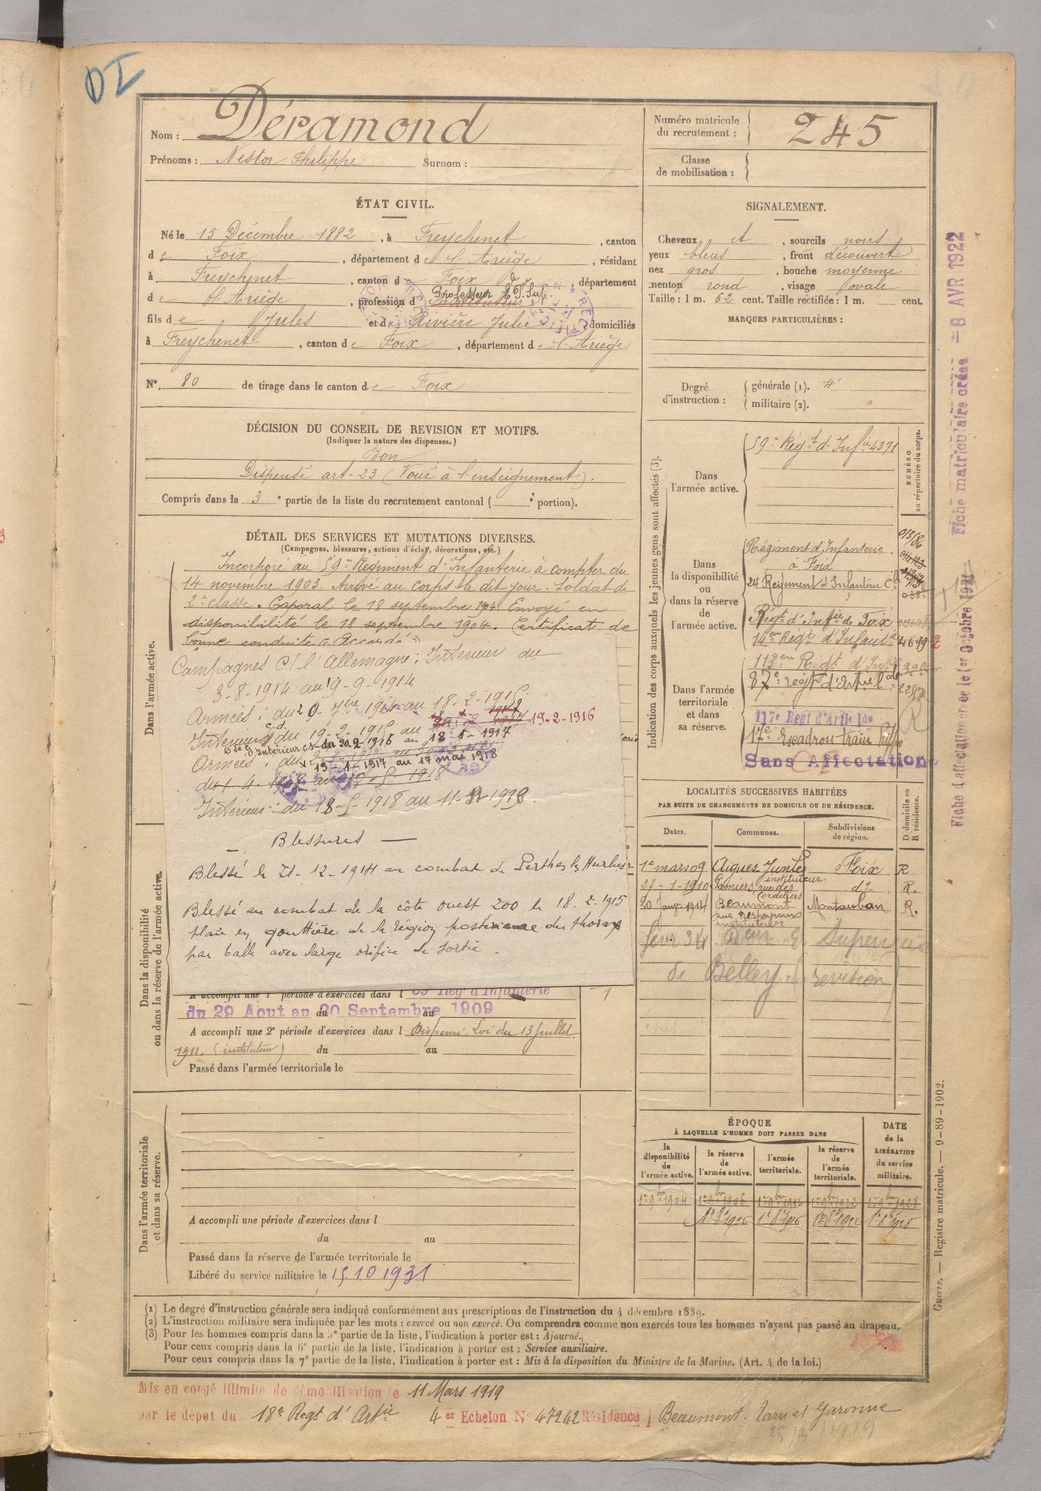 Nom : Déramond
Prénoms : Nestor Philippe Surnom :
Numéro matricule du recrutement : 245
Classe de mobilisation :
ÉTAT CIVIL.
Né le 15 Décembre 1882, à Freychenet, canton
de Foix, département de l'Ariège, résidant
à Freychenet, canton de Foix, département
de l'Ariège, profession d Professeur E.P.Sup.
fils de Jules et de Rivière Julie domiciliés
à Freychenet, canton de Foix, département de l'Ariège
N° 80 de tirage dans le canton de Foix
SIGNALEMENT.
Cheveux et, sourcils noirs
yeux bleus, front découvert
nez gros, bouche moyenne
menton rond, visage ovale
Taille : 1 m. 62 cent. Taille rectifiée : 1 m. cent.
MARQUES PARTICULIÈRES :
Degré d'instruction : générale (1). 4
militaire (2).
DÉCISION DU CONSEIL DE REVISION ET MOTIFS.
(Indiquer la nature des dispenses.)
Bon
Dispensé art. 23 (Voué à l'enseignement).
Compris dans la 3e partie de la liste du recrutement cantonal ( portion).
DÉTAIL DES SERVICES ET MUTATIONS DIVERSES.
(Campagnes, blessures, actions d'éclat, décorations, etc.)
Dans l'armée active.
Incorporé au 59e Régiment d'Infanterie à compter du
14 novembre 1903. Arrivé au corps le dit jour. Soldat de
2e classe. Caporal le 18 septembre 1904. Envoyé en
disponibilité le 18 septembre 1904. Certificat de
bonne conduite "Accordé"
Campagnes C/ l'Allemagne : Intérieur du
3-8-1914 au 19-9-1914
Armées : du 20 7bre 1914 au 18-2-1915
Intérieur du 19-2-1915 au 19-2-1916
du 20-2-1916 au 18-1-1917
Armées : du 19-1-1917 au 17 mai 1918
Intérieur : du 18-5-1918 au 11-3-1919.
Blessures
Blessé le 21-12-1914 au combat de Perthes les Hurlus
Blessé au combat de la côte ouest 200 le 18-2-1915
plaie en gouttière de la région postérieure du thorax
par balle avec large orifice de sortie.
Dans la disponibilité ou dans la réserve de l'armée active.
A accompli une 1re période d'exercices dans l 59 Rég d'Infanterie
du 29 Aout au 20 Septembre 1909
A accompli une 2e période d'exercices dans l Dispensé. Loi du 13 juillet
1911. (instituteur) du au
Passé dans l'armée territoriale le
Dans l'armée territoriale et dans sa réserve.
A accompli une période d'exercices dans l
du au
Passé dans la réserve de l'armée territoriale le
Libéré du service militaire le 15.10.1931
Indication des corps auxquels les jeunes gens sont affectés (3).
NUMÉRO au répertoire du corps.
Dans l'armée active.
59e Régt d'Infie 4371
Dans la disponibilité ou dans la réserve de l'armée active.
Régiment d'Infanterie à Foix
Régt d'Infie de Foix
14e Régt d'Infanterie
Dans l'armée territoriale et dans sa réserve.
87e régt d'Artel
117e Regt d'Artie lde
17e Escadron train
Sans Affectation
LOCALITÉS SUCCESSIVES HABITÉES
PAR SUITE DE CHANGEMENTS DE DOMICILE OU DE RÉSIDENCE.
Dates. Communes. Subdivisions de région. D domicile ou R résidence.
1er mars 09 Aigues Juntes instituteur Foix R
27-1-1910 Pamiers, rue des Cordeliers do R.
20 janv. 1914 Beaumont Montauban R.
de Belley
ÉPOQUE
À LAQUELLE L'HOMME DOIT PASSER DANS
la disponibilité de l'armée active.
la réserve de l'armée active.
l'armée territoriale.
la réserve de l'armée territoriale.
DATE de la LIBÉRATION du service militaire.
1er 9bre 1904 1er 9bre 1906 1er 9bre 1916 1er 9bre 1922 1er 9bre 1928
(1) Le degré d'instruction générale sera indiqué conformément aux prescriptions de l'instruction du 4 décembre 1889.
(2) L'instruction militaire sera indiquée par les mots : exercé ou non exercé. On comprendra comme non exercés tous les hommes n'ayant pas passé au drapeau.
(3) Pour les hommes compris dans la 5e partie de la liste, l'indication à porter est : Ajourné.
Pour ceux compris dans la 6e partie de la liste, l'indication à porter est : Service auxiliaire.
Pour ceux compris dans la 7e partie de la liste, l'indication à porter est : Mis à la disposition du Ministre de la Marine. (Art. 4 de la loi.)
Mis en congé illimité de démobilisation le 11 Mars 1919
par le dépot du 18e Regt d'Artie 4er Echelon N° 47242 Résidence Beaumont Tarn et Garonne
Guerre. — Registre matricule. — 9-89-1902.
Fiche matriculaire créée = 8 AVR 1922
Fiche d'affectation créée le 1er Octobre 1921